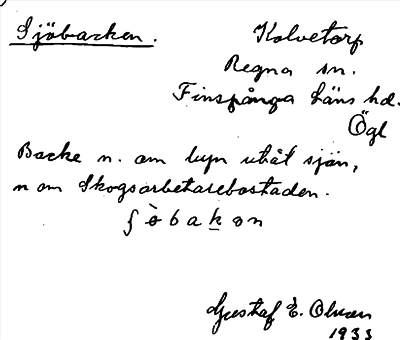 Sjöbacken. Kolvetorp
Regna sn.
Finspånga läns hd.
Ögl
Backe n. om byn utåt sjön,
n om Skogsarbetarebostaden.
ʃöbakən
Gustaf E. Olsson
1933